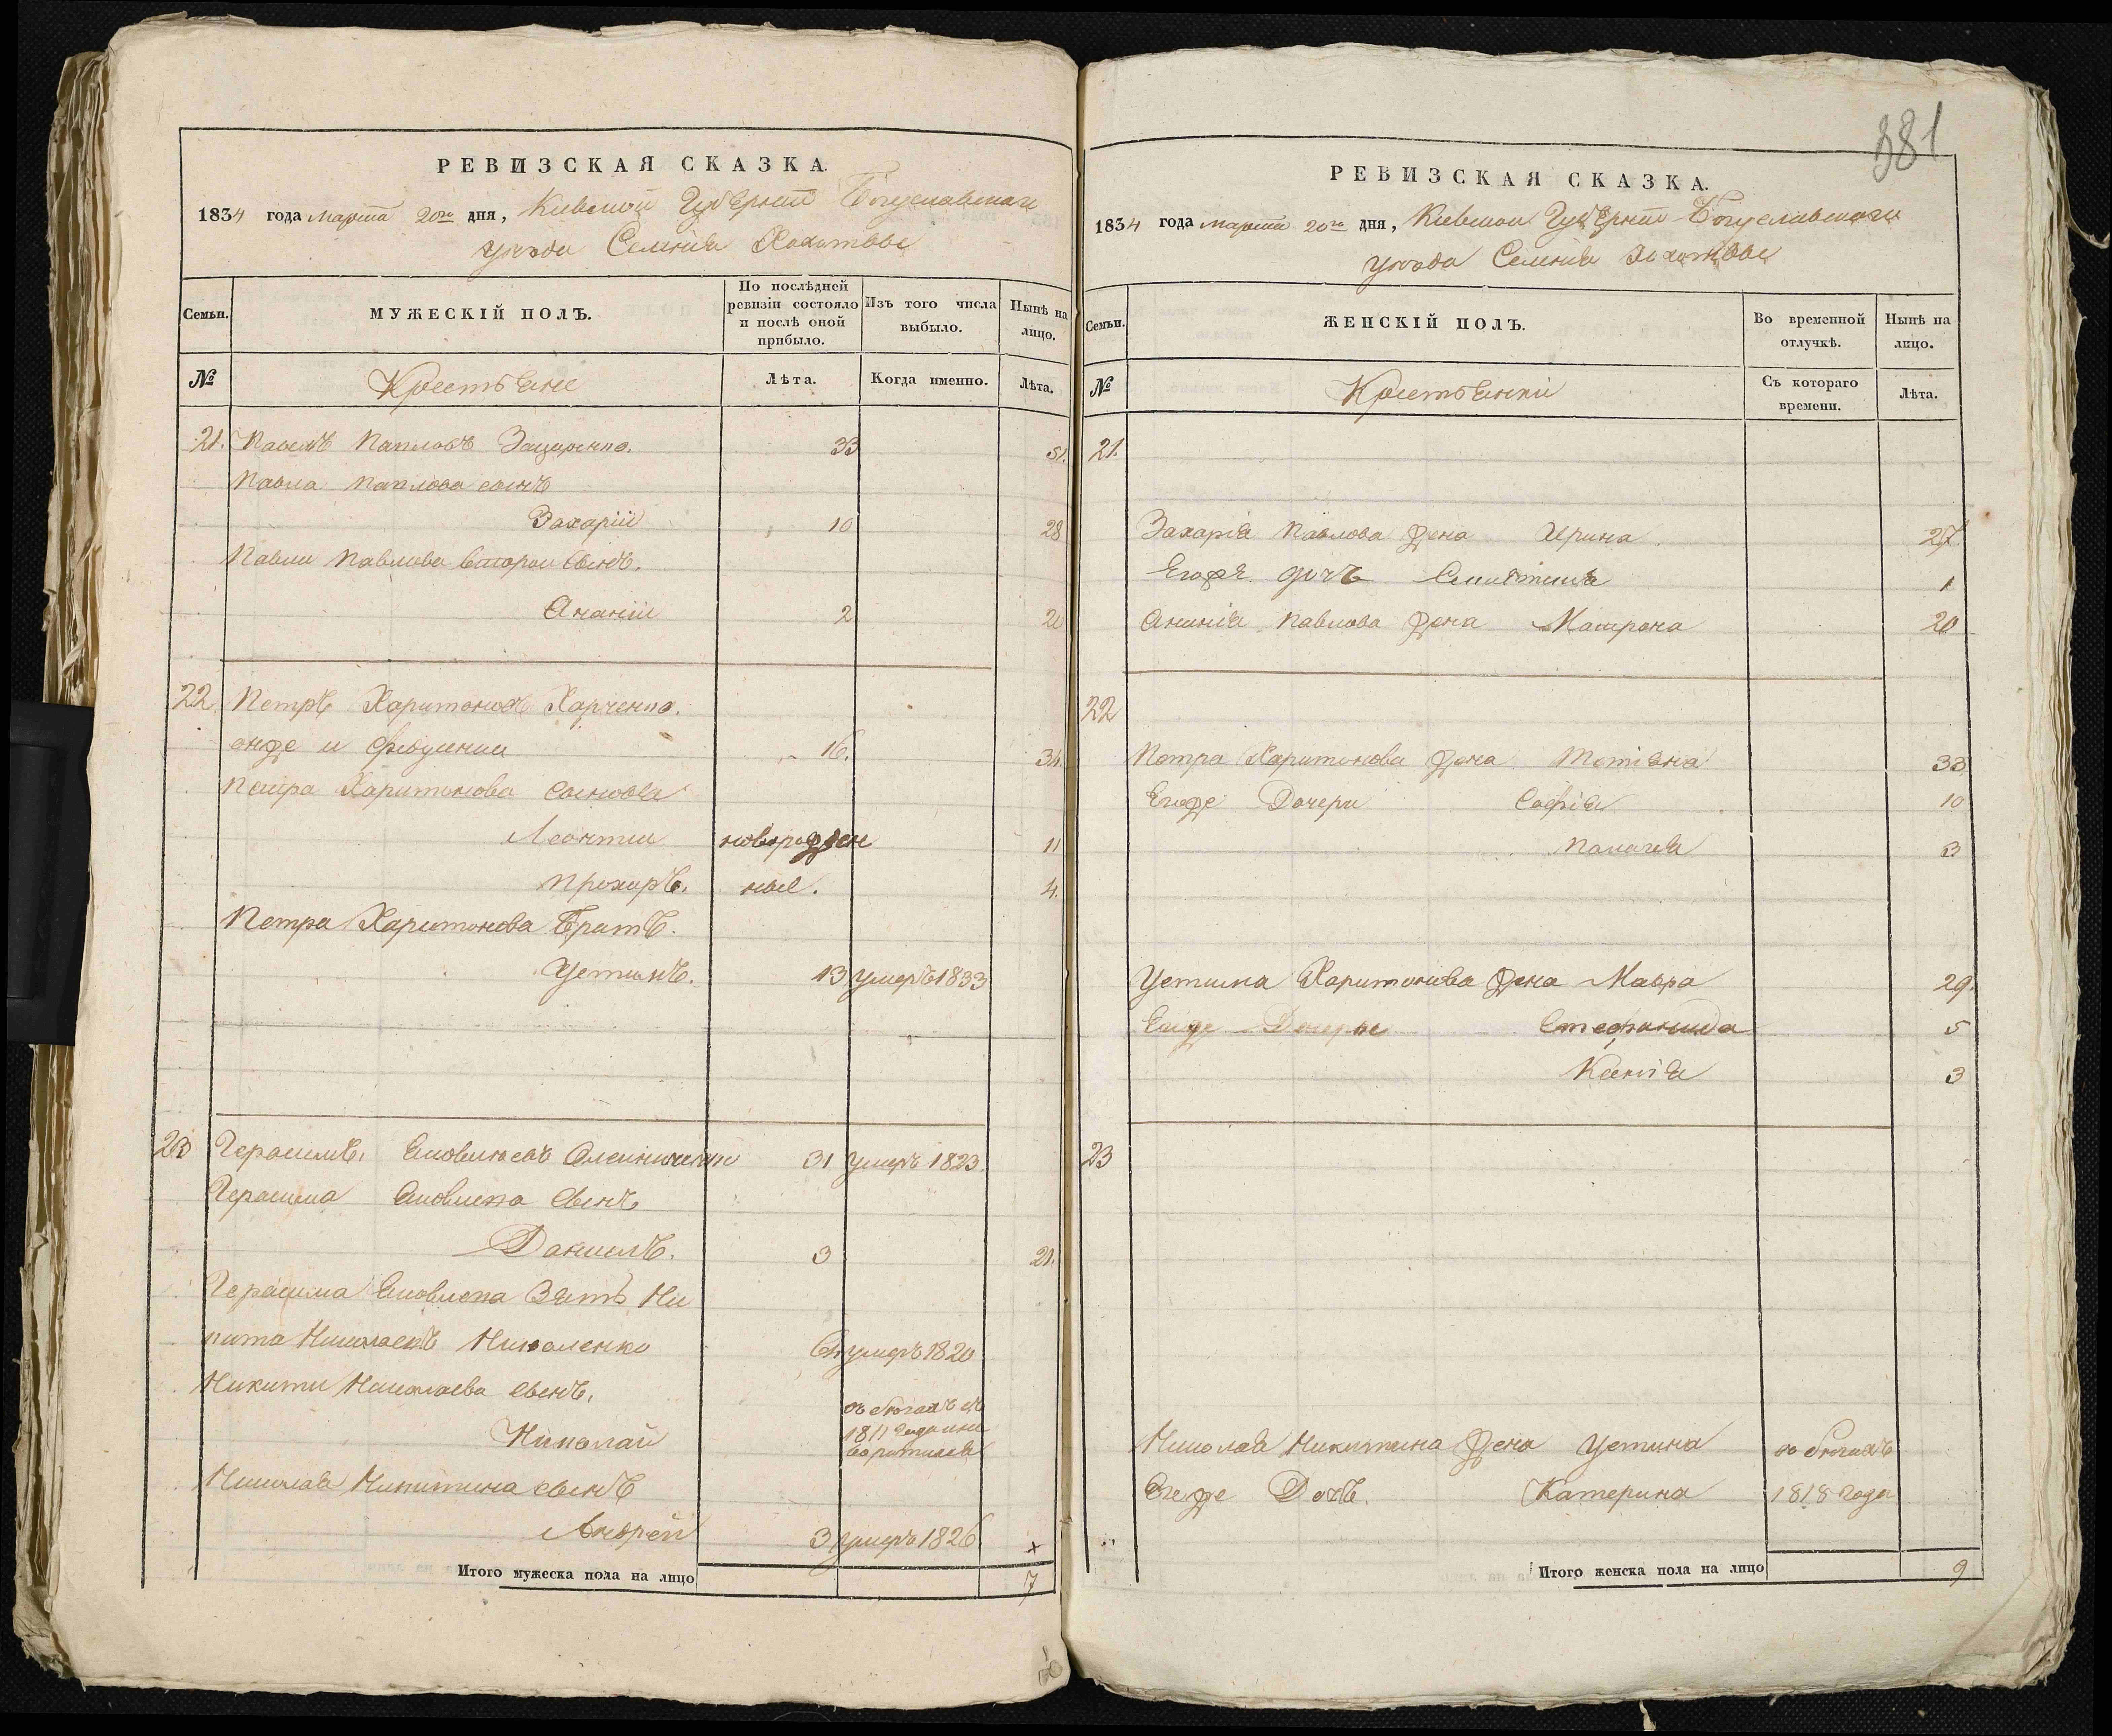 РЕВИЗСКАЯ СКАЗКА.
1834 года марта 20го дня, Киевской Губернiи Богуславскаго
уезда Селенiя Хохитвы
Семьи.
МУЖЕСКIЙ ПОЛЪ.
По послѣдней ревизiи состояло и послѣ оной прибыло.
Изъ того числа выбыло.
Нынѣ на лицо.
№
Крестьяне
Лѣта.
Когда именно.
Лѣта.
21. Павелъ Павловъ Захарченко. 33 51.
Павла Павлова сынъ
Захарiй 10 28
Павла Павлова второй сынъ.
Ананiй 2 20
22 Петръ Харитоновъ Харченко.
онже и 16. 34.
Петра Харитонова сыновья
Леонтiй новорожден 11
Прохоръ. ные. 4.
Петра Харитонова Братъ.
Устинъ. 13 умеръ 1833
23 Герасимъ Яковлевъ Олейниченко 31 умеръ 1823.
Герасима Яковлева сынъ
Данiилъ. 3 21.
Герасима Яковлева Зять Ни
кита Николаевъ Николенко умеръ 1820
Никиты Николаева сынъ.
Николай въ бегахъ съ 1811 года
Николая Никитина сынъ
Андрей 3 умеръ 1826.
Итого мужеска пола на лицо 7
381
РЕВИЗСКАЯ СКАЗКА.
1834 года марта 20го дня, Киевской Губернiи Богуславскаго
уезда Селенiя Хохитвы
Семьи.
ЖЕНСКIЙ ПОЛЪ.
Во временной отлучкѣ.
Нынѣ на лицо.
№
Крестьянки
Съ котораго времени.
Лѣта.
21.
Захарiя Павлова жена Ирина 27
Егоже дочь 1
Ананiя Павлова жена Матрона 20
22
Петра Харитонова жена Татiяна 33
Егоже Дочери Софiя 10
Палагея 3
Устина Харитонова жена Мавра 29.
Егоже Дочери Стефанида 5
Ксенiя 3
23
Николая Никитина жена Устина въ бегахъ
Егоже Дочь. Катерина 1818 года
Итого женска пола на лицо 9